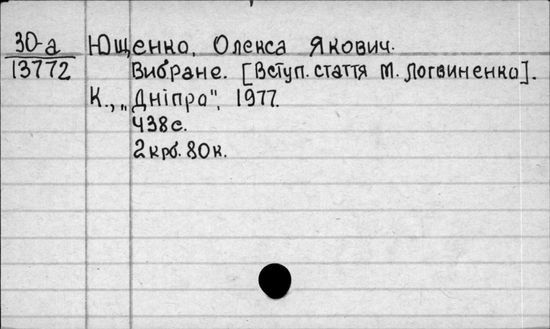 30-а Ющенко, Олекса Якович.
13772 Вибране. [Вступ. стаття М. Логвиненка].
К., „Дніпро", 1977.
438 с.
2 крб. 80 к.